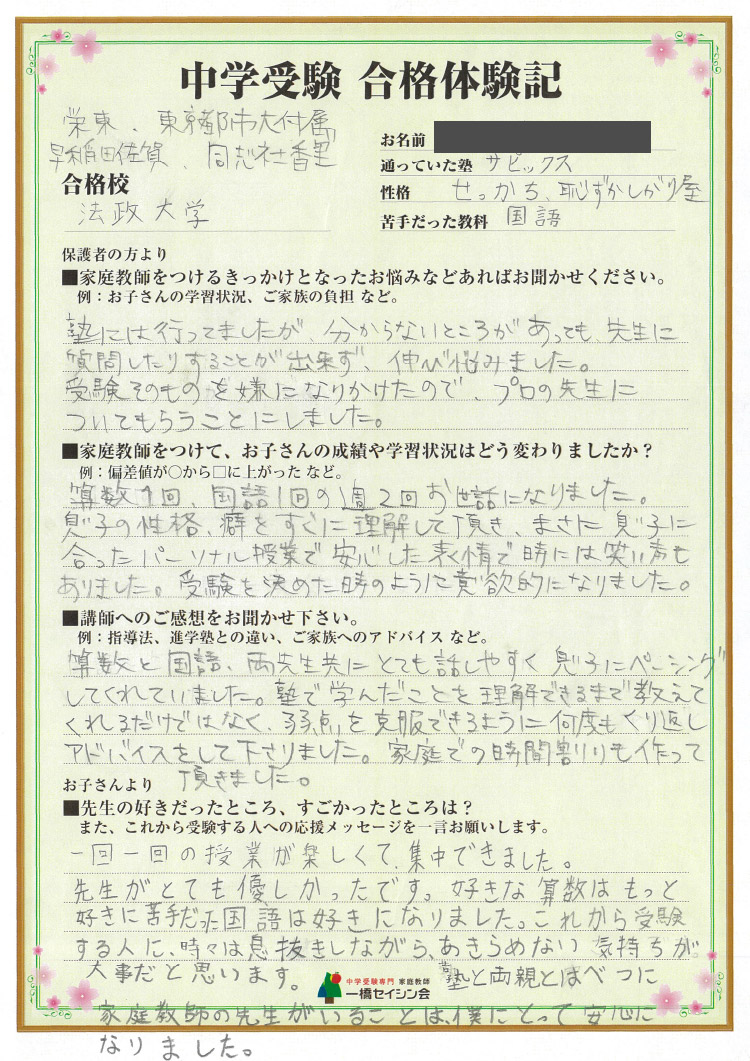 中学受験 合格体験記
栄東、東京都市大付属
早稲田佐賀、同志社香里
合格校
法政大学
お名前
通っていた塾 サピックス
性格 せっかち、恥ずかしがり屋
苦手だった教科 国語
保護者の方より
■家庭教師をつけるきっかけとなったお悩みなどあればお聞かせください。
例：お子さんの学習状況、ご家族の負担 など。
塾には行ってましたが、分からないところがあっても、先生に
質問したりすることが出来ず、伸び悩みました。
受験そのものを嫌になりかけたので、プロの先生に
ついてもらうことにしました。
■家庭教師をつけて、お子さんの成績や学習状況はどう変わりましたか？
例：偏差値が○から□に上がった など。
算数1回、国語1回の週2回お世話になりました。
息子の性格、癖をすぐに理解して頂き、まさに息子に
合ったパーソナル授業で安心した表情で時には笑い声も
ありました。受験を決めた時のように意欲的になりました。
■講師へのご感想をお聞かせ下さい。
例：指導法、進学塾との違い、ご家族へのアドバイス など。
算数と国語、両先生共にとても話しやすく息子にペーシング
してくれていました。塾で学んだことを理解できるまで教えて
くれるだけではなく、弱点を克服できるように何度もくり返し
アドバイスをして下さりました。家庭での時間割りも作って
頂きました。
お子さんより
■先生の好きだったところ、すごかったところは？
また、これから受験する人への応援メッセージを一言お願いします。
一回一回の授業が楽しくて、集中できました。
先生がとても優しかったです。好きな算数はもっと
好きに苦手だった国語は好きになりました。これから受験
する人に、時々は息抜きしながら、あきらめない気持ちが
大事だと思います。
塾と両親とはべつに
中学受験専門 家庭教師
一橋セイシン会
家庭教師の先生がいることは、僕にとって安心に
なりました。